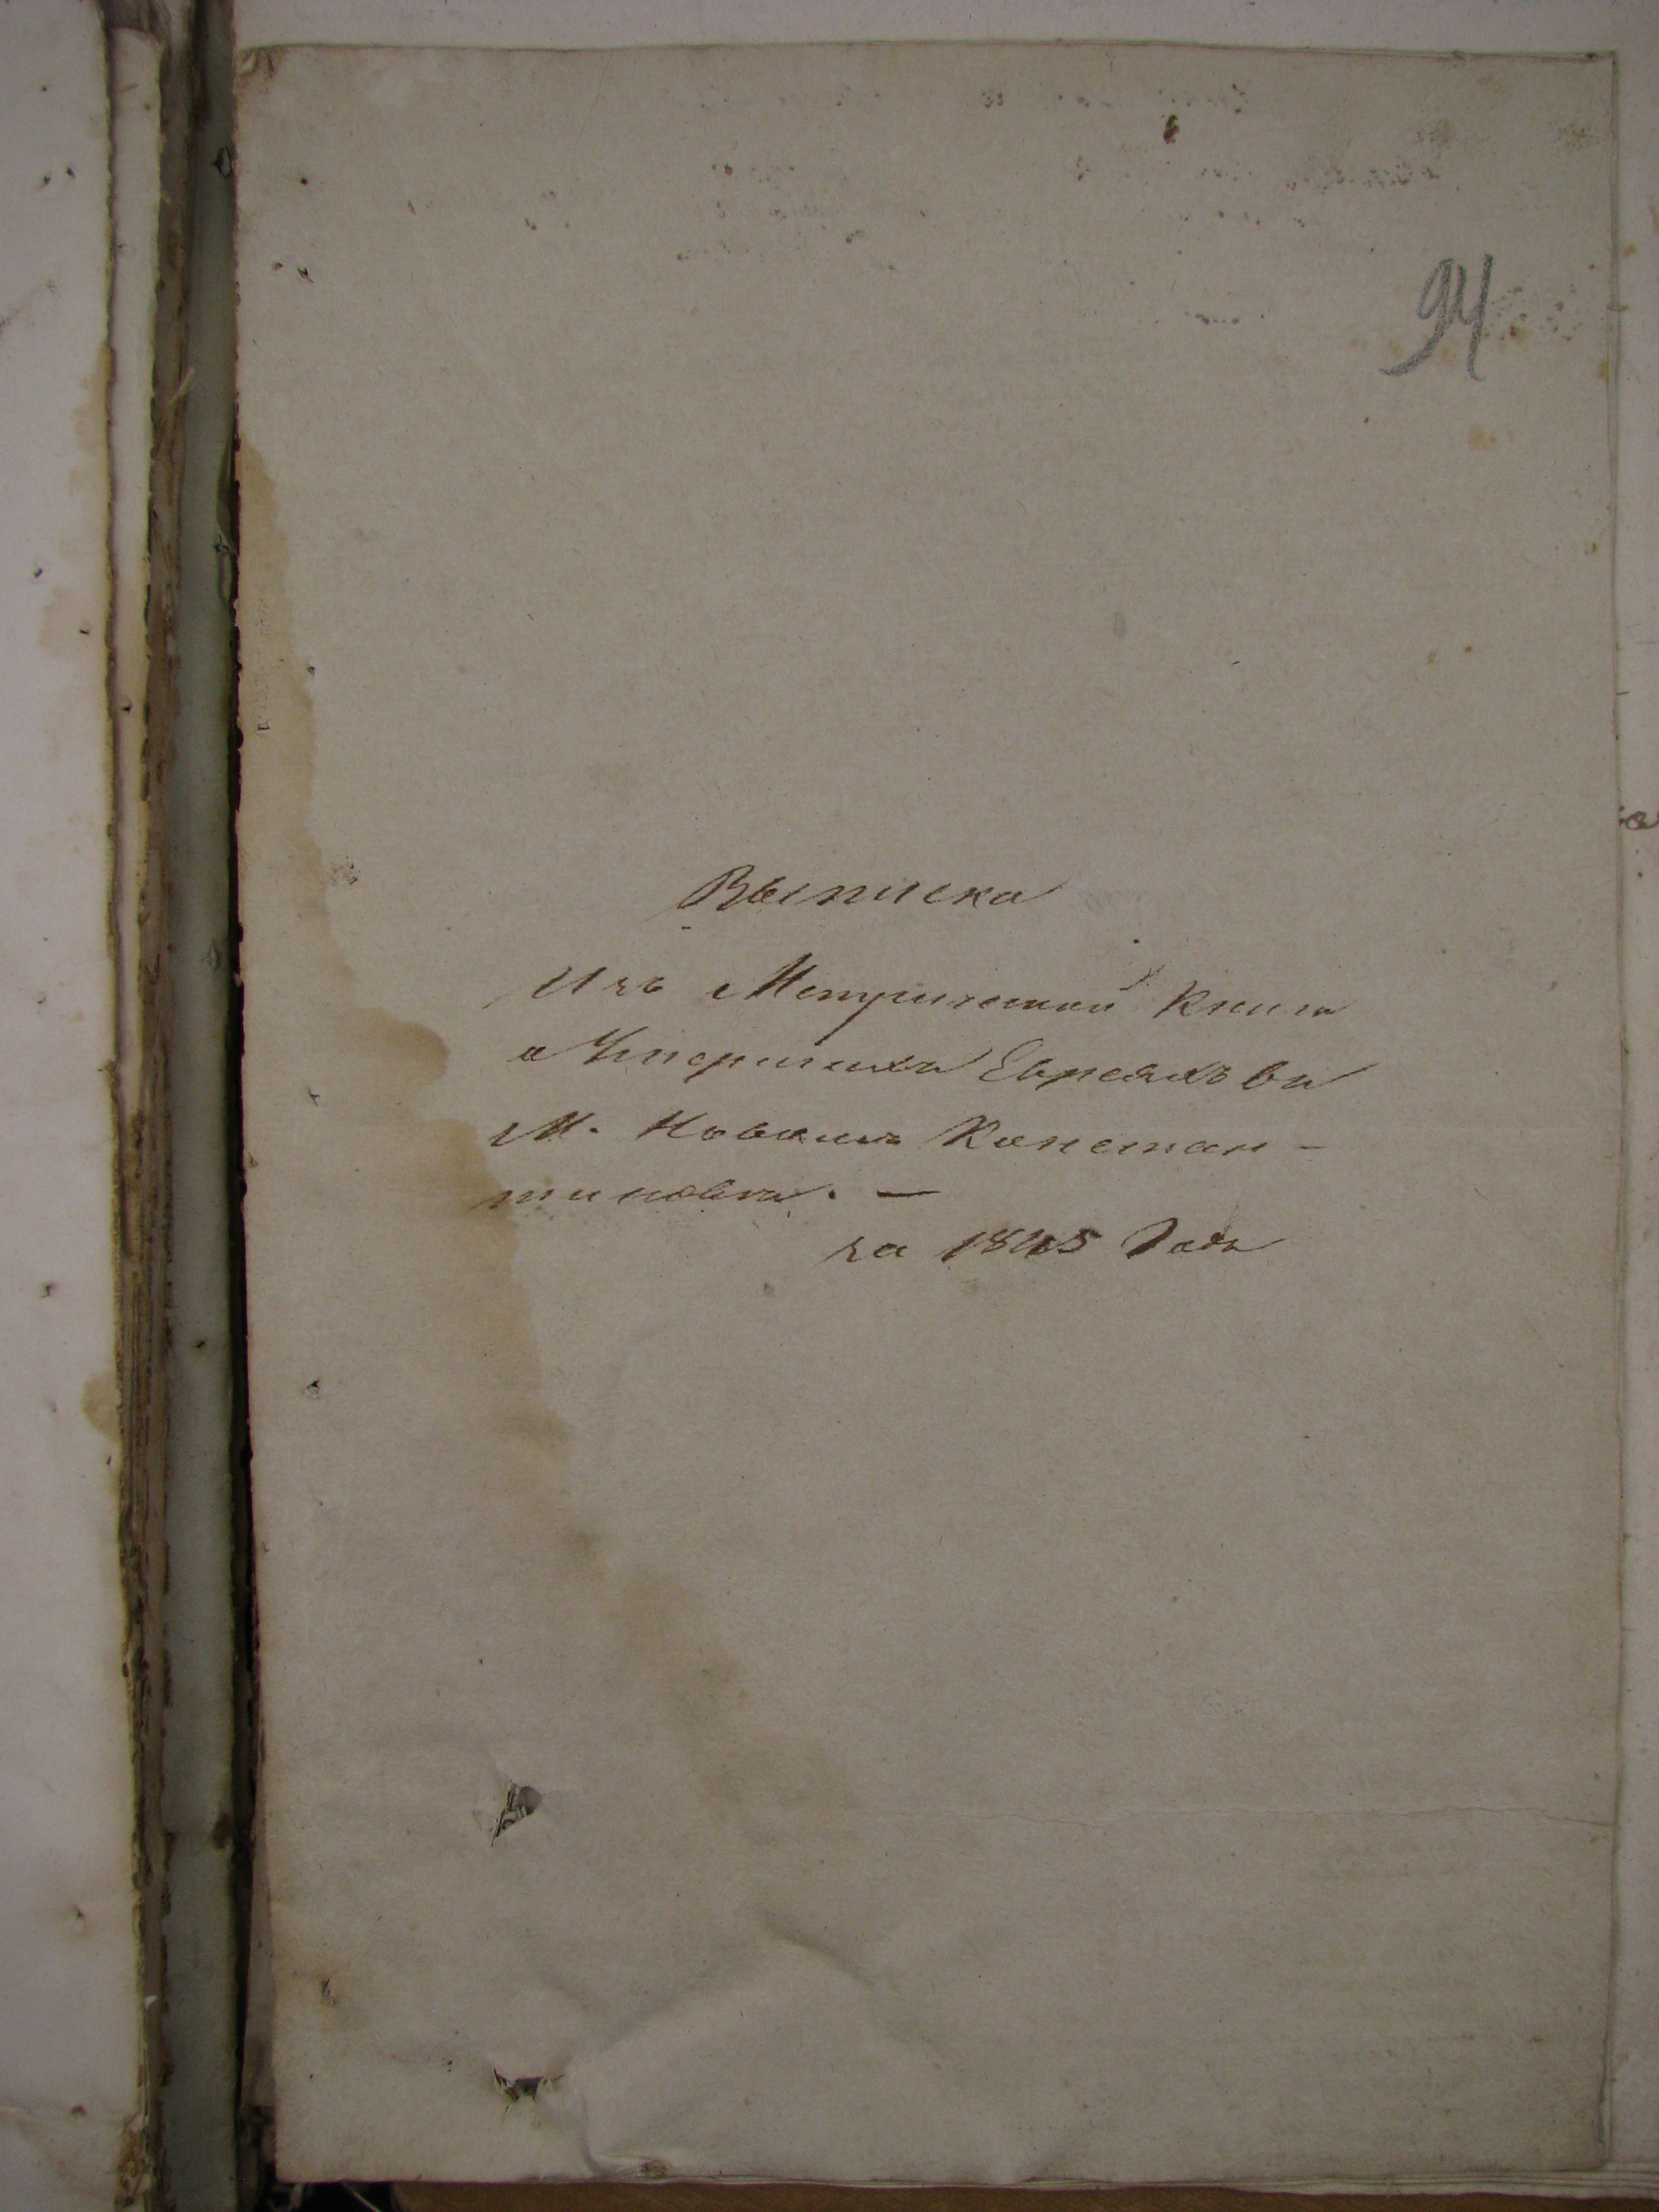 94
Выписка
Изъ Метрической Книги
о Умершихъ Евреяхъ въ
М. Новыхъ Констан-
тиновъ. —
за 1845 Годъ